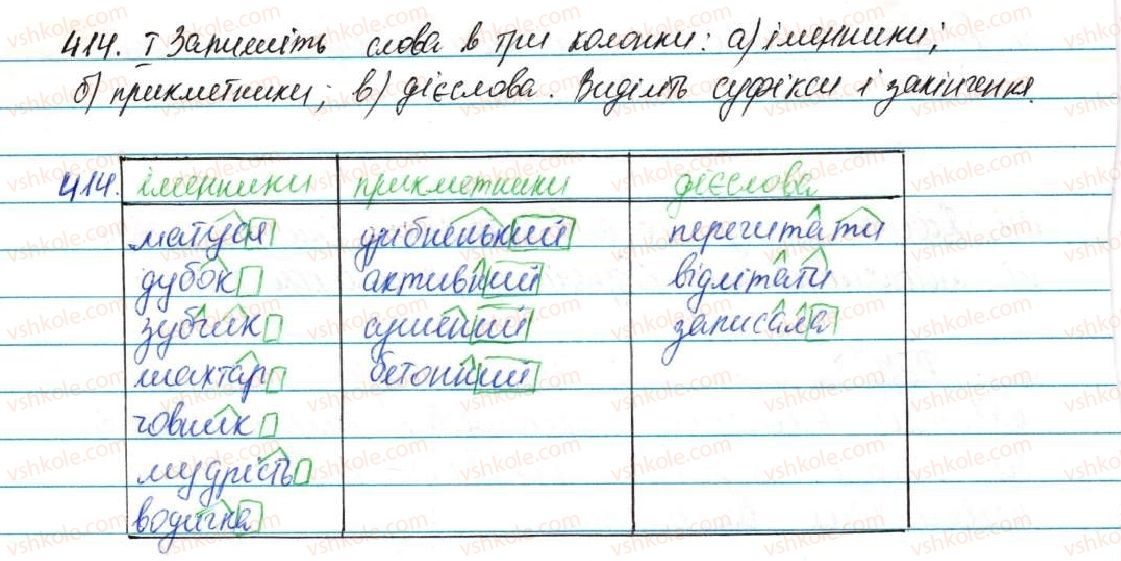 414. І Запишіть слова в три колонки: а) іменники;
б) прикметники; в) дієслова. Виділіть суфікси і закінчення.
414. іменники прикметники дієслова
матуся дрібненький перечитати
дубок активний відлітати
зубчик сушений записала
шахтар бетонний
човник
мудрість
водичка